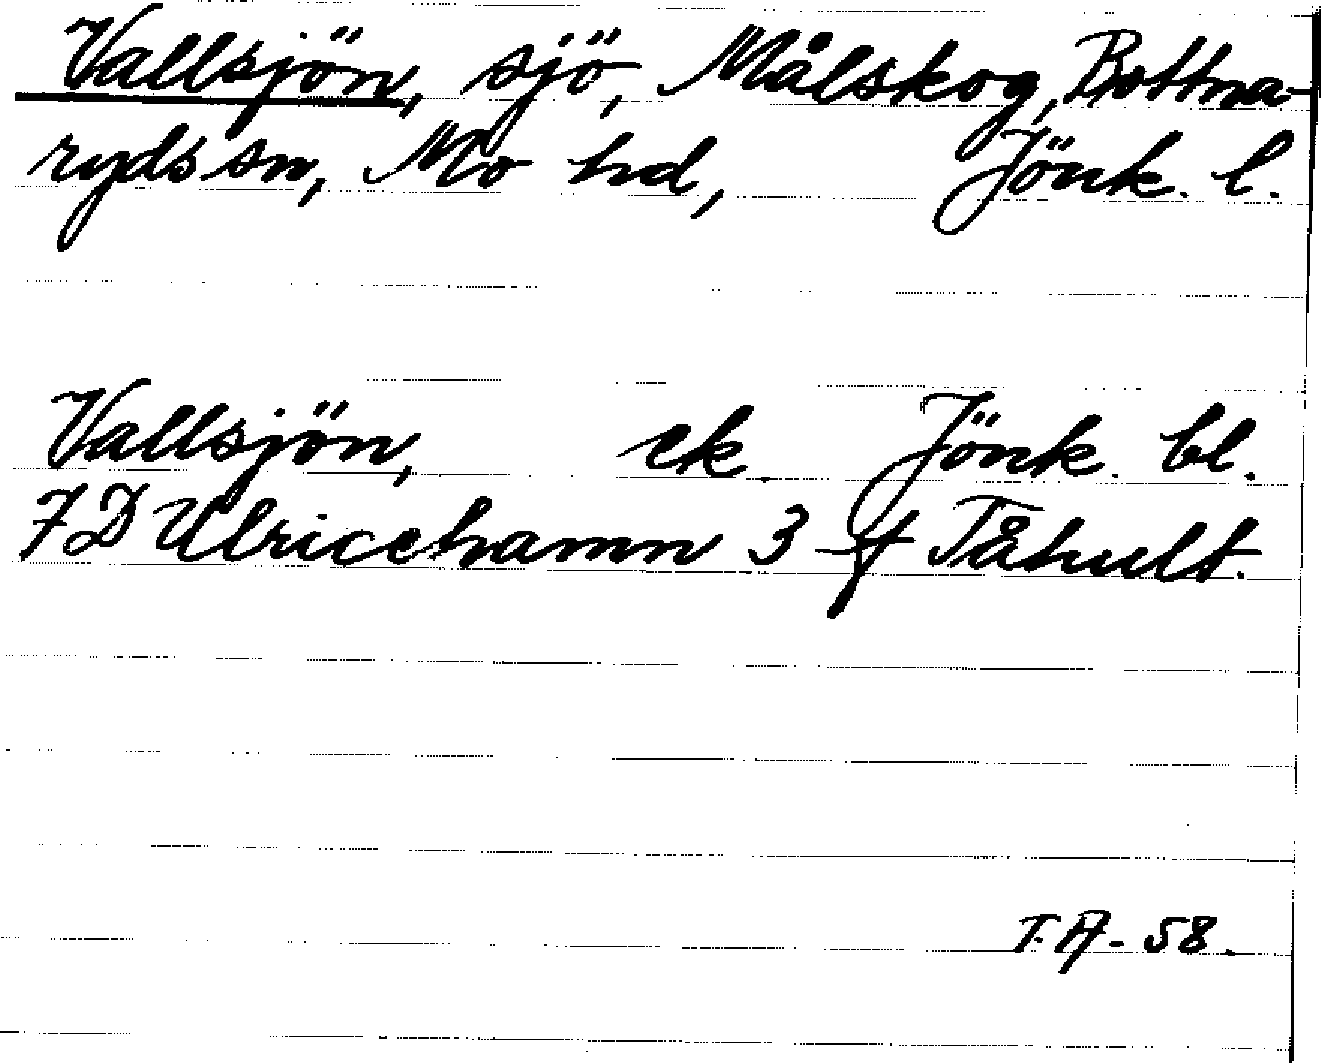 Vallsjön, sjö, Målskog, Bottna-
ryds sn, Mo hd, Jönk. l.
Vallsjön, ek Jönk. bl.
7D Ulricehamn 3 f Tåhult.
T.A-58.